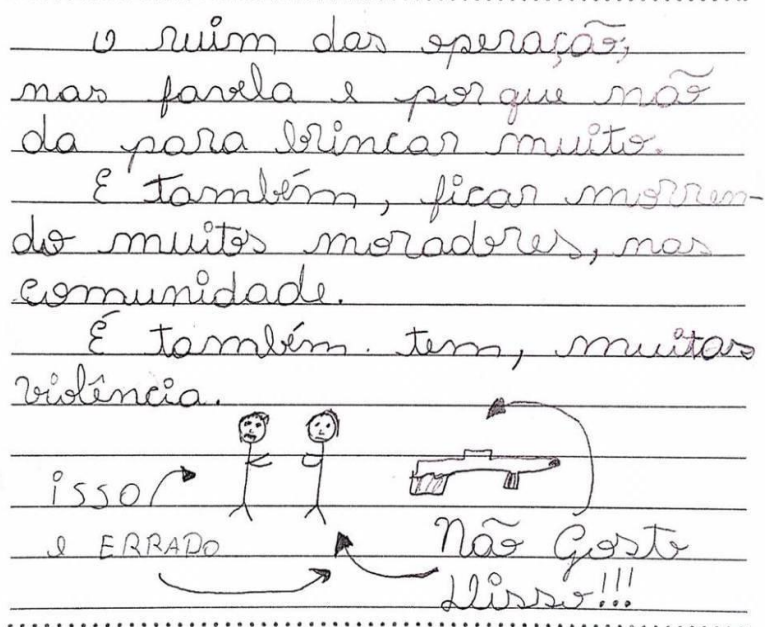 o ruim das operação,
nas favela e por que não
da para brincar muito.
E também, ficar morren-
do muitos moradores, nas
comunidade.
É também. tem, muitas
violência.
isso
e ERRADO
Não Gosto
disso!!!